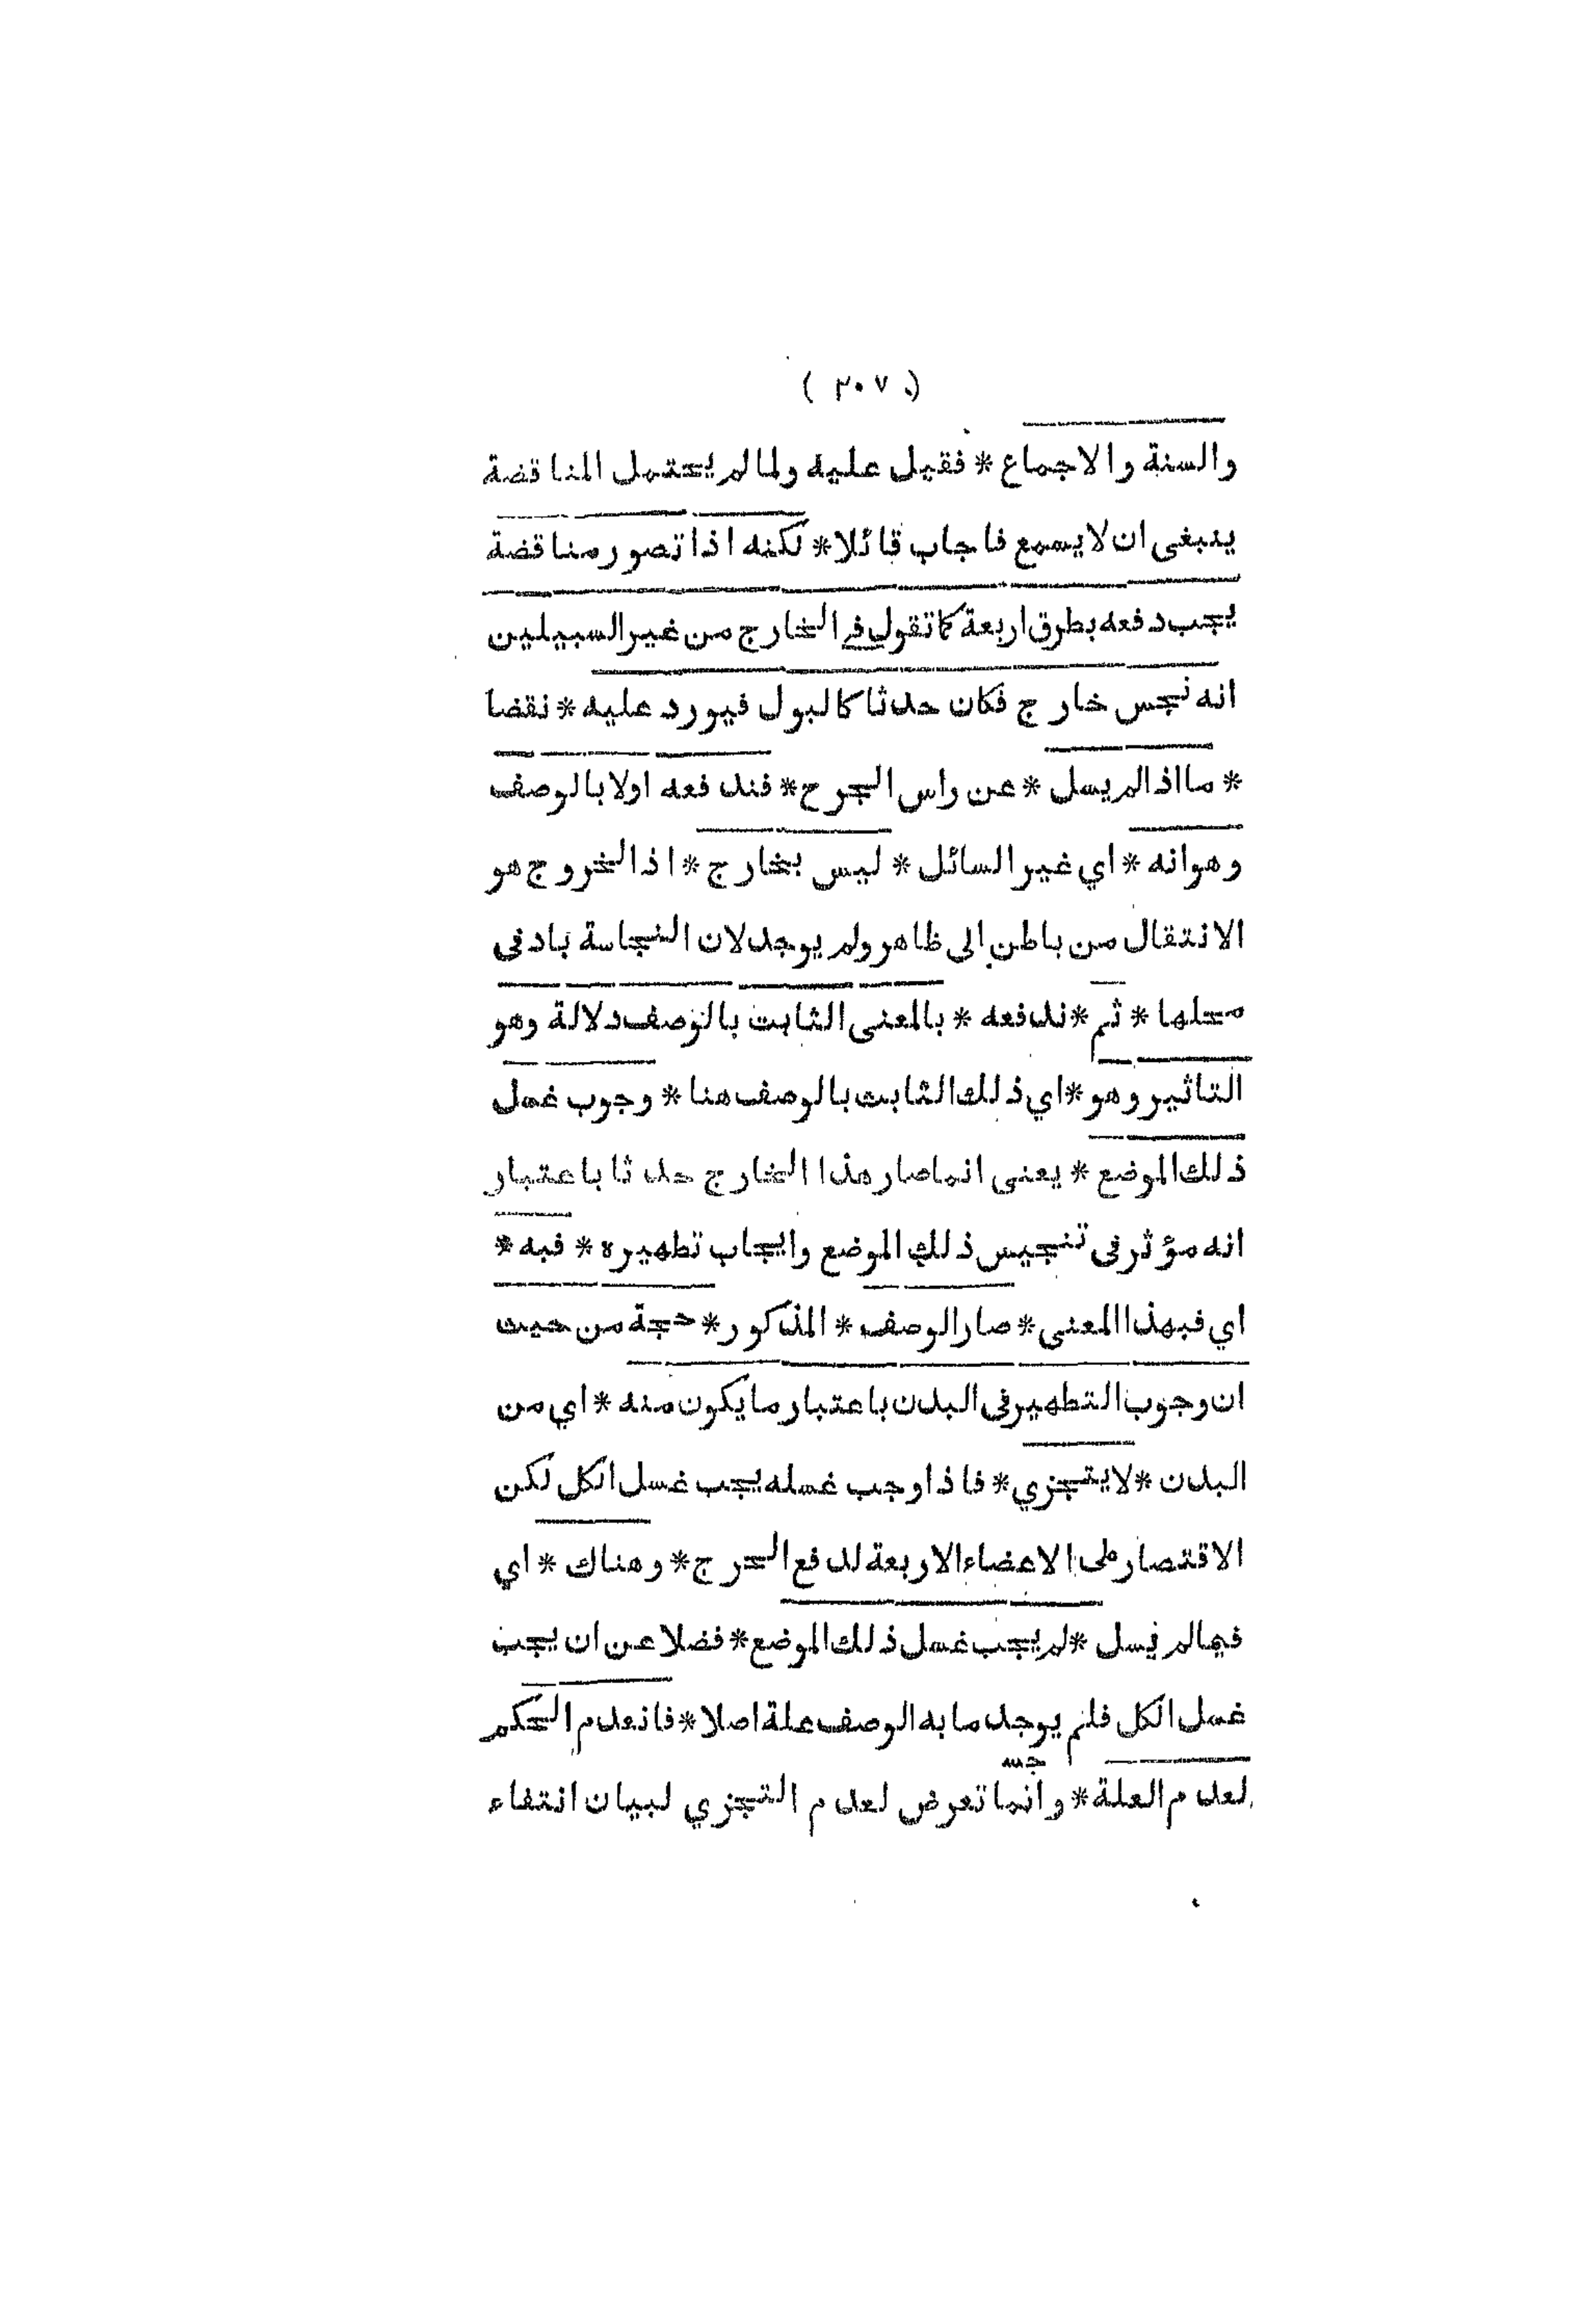 ( ٣٠٧ )
والسنة والاجماع * فقيل عليه ولما لم يحتمل المناقضة
ينبغى ان لا يسمع فاجاب قائلا * لكنه اذا تصور مناقضة
يجب دفعه بطرق اربعة كما تقول في الخارج من غير السبيلين
انه نجس خارج فكان حدثا كالبول فيورد عليه * نقضا
* ما اذا لم يسل * عن راس الجرح * فندفعه اولا بالوصف
وهو انه * اي غير السائل * ليس بخارج * اذ الخروج هو
الانتقال من باطن الى ظاهر ولم يوجد لان النجاسة باد فى
محلها * ثم * ندفعه * بالمعنى الثابت بالوصف دلالة وهو
التاثير وهو * اي ذلك الثابت بالوصف هنا * وجوب غسل
ذلك الموضع * يعنى انما صار هذا الخارج حدثا باعتبار
انه مؤثر فى تنجيس ذلك الموضع وايجاب تطهيره * فبه *
اي فبهذا المعنى * صار الوصف * المذكور * حجة من حيث
ان وجوب التطهير فى البدن باعتبار ما يكون منه * اي من
البدن * لا يتجزي * فاذا وجب غسله يجب غسل الكل لكن
الاقتصار على الاعضاء الاربعة لدفع الحرج * وهناك * اي
فيما لم يسل * لم يجب غسل ذلك الموضع * فضلا عن ان يجب
غسل الكل فلم يوجد ما به الوصف علة اصلا * فانعدم الحكم
لعدم العلة * وانما تعرض لعدم التجزي لبيان انتفاء